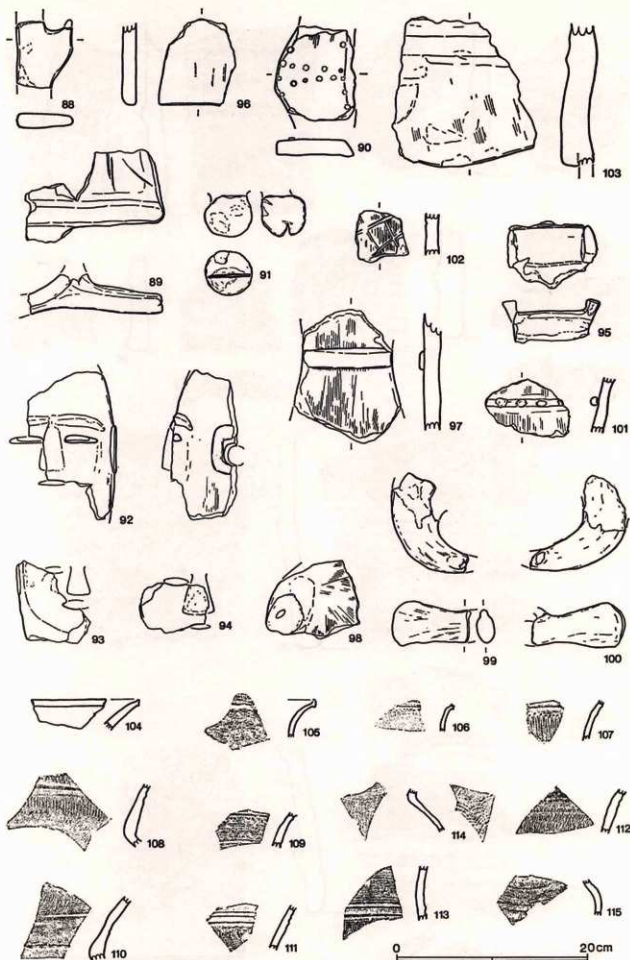 88
96
90
103
89
91
102
95
97
101
92
93
94
98
99
100
104
105
106
107
108
109
114
112
110
111
113
115
0 20cm